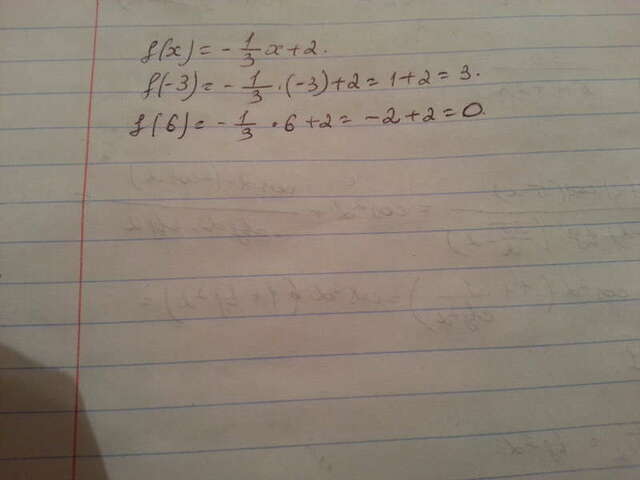 f(x) = - 1/3 x + 2.
f(-3) = - 1/3 · (-3) + 2 = 1 + 2 = 3.
f(6) = - 1/3 · 6 + 2 = -2 + 2 = 0.